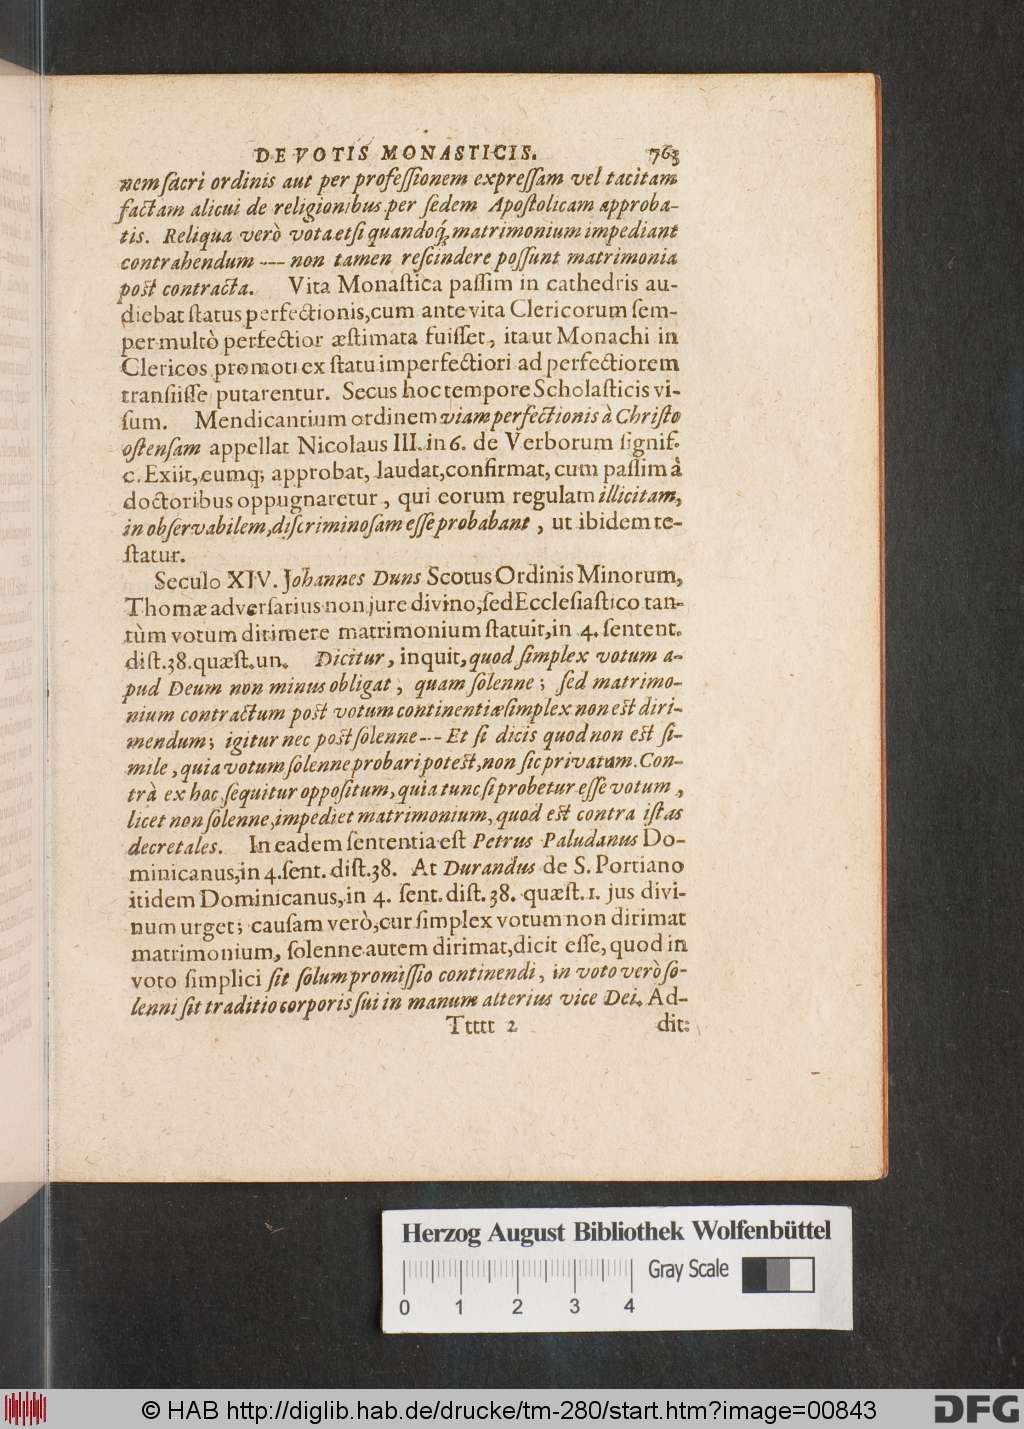 DE VOTIS MONASTICIS. 763
nem sacri ordinis aut per professionem expressam vel tacitam
factam alicui de religionibus per sedem Apostolicam approba-
tis. Reliqua verò vota etsi quandoq; matrimonium impediant
contrahendum --- non tamen rescindere possunt matrimonia
post contracta. Vita Monastica passim in cathedris au-
diebat status perfectionis, cum ante vita Clericorum sem-
per multò perfectior æstimata fuisset, ita ut Monachi in
Clericos promoti ex statu imperfectiori ad perfectiorem
transiisse putarentur. Secus hoc tempore Scholasticis vi-
sum. Mendicantium ordinem viam perfectionis à Christo
ostensam appellat Nicolaus III. in 6. de Verborum signif.
c. Exiit, eumq; approbat, laudat, confirmat, cum passim à
doctoribus oppugnaretur, qui eorum regulam illicitam,
in observabilem, discriminosam esse probabant, ut ibidem te-
statur.
Seculo XIV. Johannes Duns Scotus Ordinis Minorum,
Thomæ adversarius non jure divino, sed Ecclesiastico tan-
tùm votum dirimere matrimonium statuit, in 4. sentent.
dist. 38. quæst. un. Dicitur, inquit, quod simplex votum a-
pud Deum non minus obligat, quam solenne; sed matrimo-
nium contractum post votum continentiæ simplex non est diri-
mendum; igitur nec post solenne --- Et si dicis quod non est si-
mile, quia votum solenne probari potest, non sic privatum. Con-
trà ex hoc sequitur oppositum, quia tunc si probetur esse votum,
licet non solenne, impediet matrimonium, quod est contra istas
decretales. In eadem sententia est Petrus Paludanus Do-
minicanus, in 4. sent. dist. 38. At Durandus de S. Portiano
itidem Dominicanus, in 4. sent. dist. 38. quæst. 1. jus divi-
num urget; causam verò, cur simplex votum non dirimat
matrimonium, solenne autem dirimat, dicit esse, quod in
voto simplici sit solum promissio continendi, in voto verò so-
lenni sit traditio corporis sui in manum alterius vice Dei. Ad-
Ttttt 2 dit:
Herzog August Bibliothek Wolfenbüttel
Gray Scale
0 1 2 3 4
© HAB http://diglib.hab.de/drucke/tm-280/start.htm?image=00843
DFG